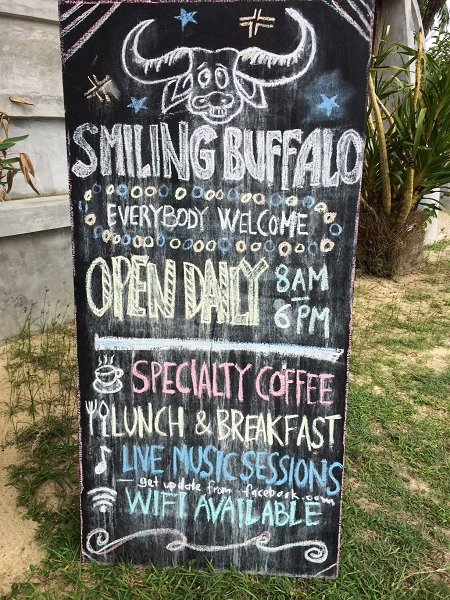 SMILING BUFFALO
EVERYBODY WELCOME
OPEN DAILY 8AM – 6PM
SPECIALTY COFFEE
LUNCH & BREAKFAST
LIVE MUSIC SESSIONS
– get update from facebook.com
WIFI AVAILABLE